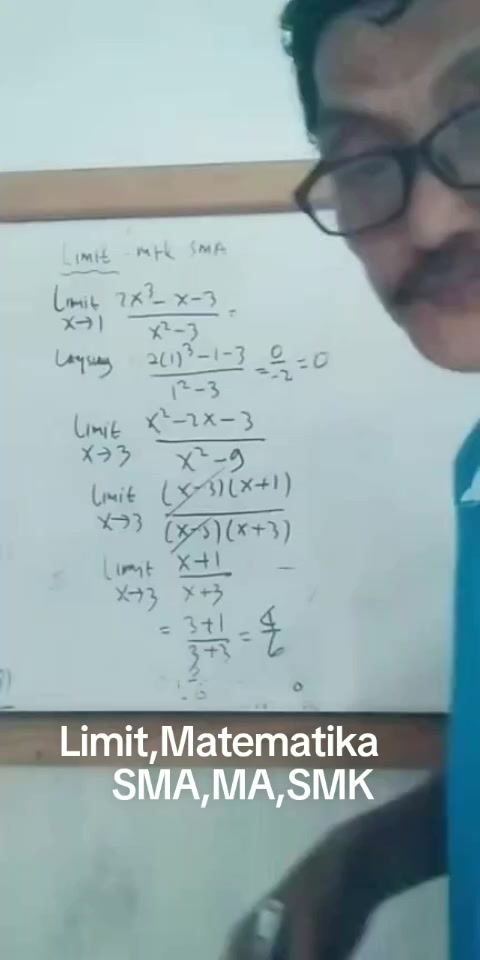 Limit mtk SMA
Limit 2x³ - x - 3
x→1 x² - 3 =
Langsung 2(1)³ - 1 - 3 = 0 = 0
1² - 3 -2
Limit x² - 2x - 3
x→3 x² - 9
Limit (x-3)(x+1)
x→3 (x-3)(x+3)
Limit x+1
x→3 x+3
= 3+1 = 4
3+3 6
Limit,Matematika
SMA,MA,SMK